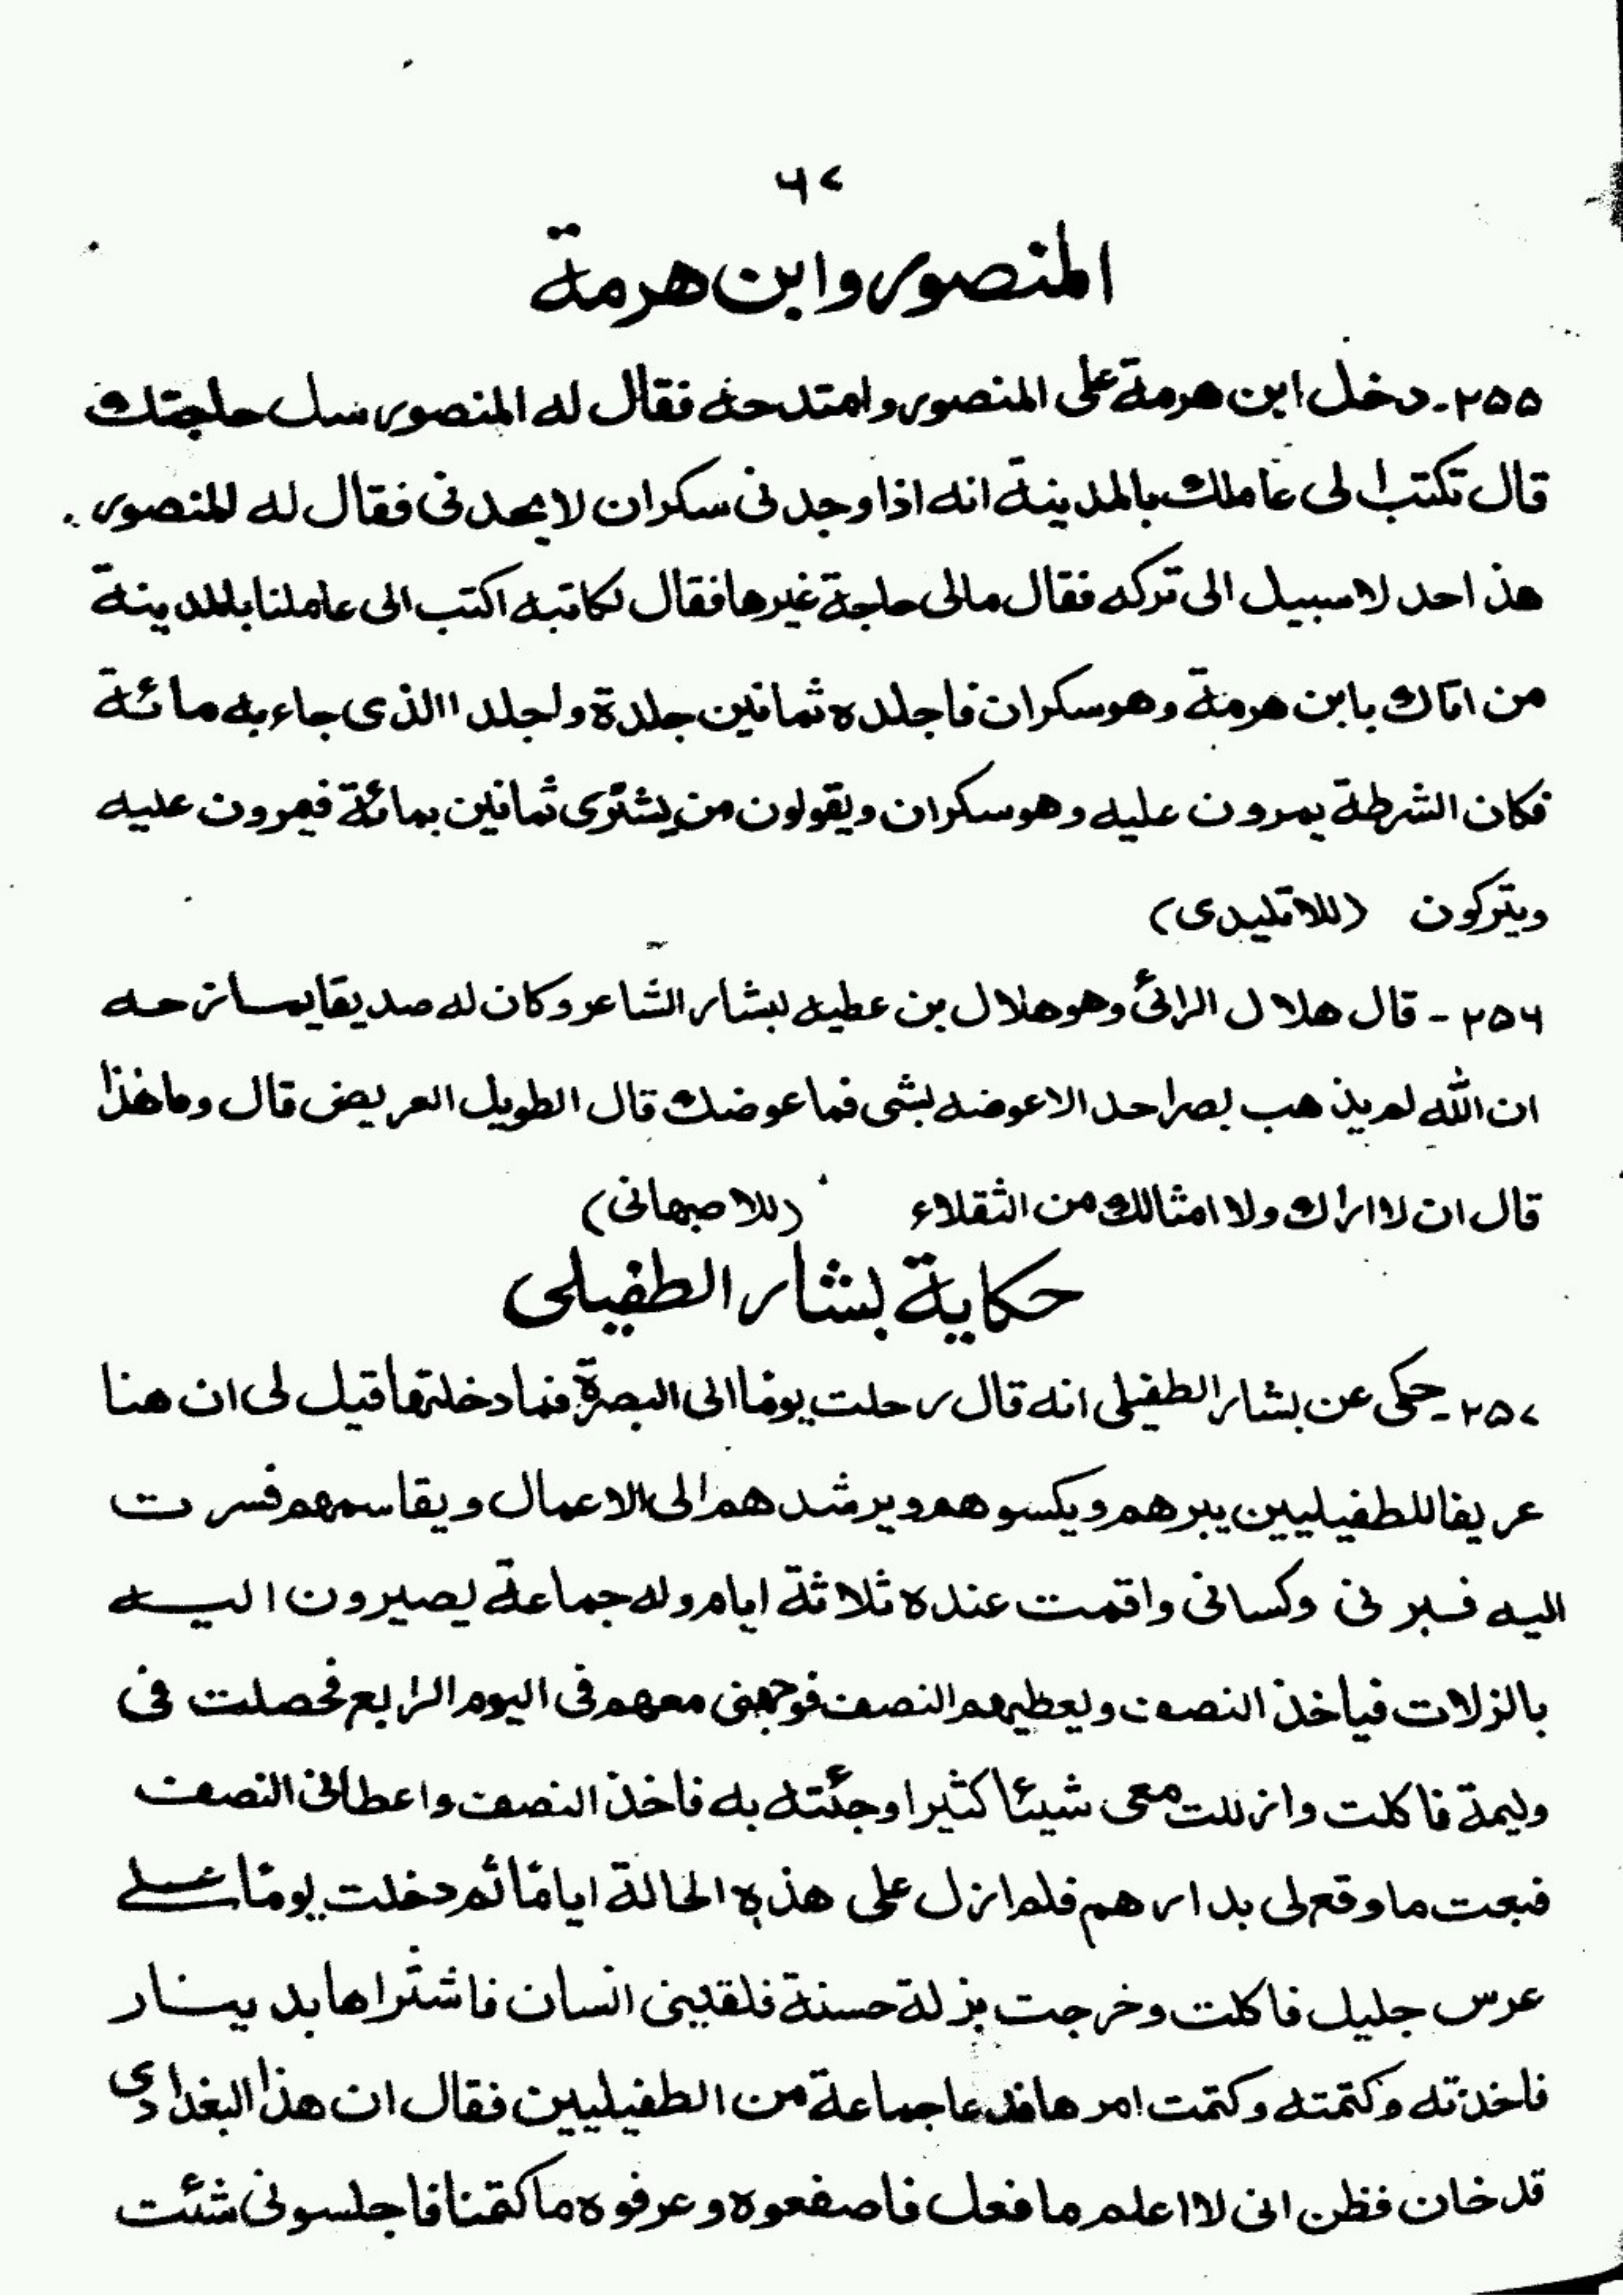 ٦٧
المنصور وابن هرمة
٢٥٥- دخل ابن هرمة على المنصور وامتدحه فقال له المنصور سل حاجتك
قال تكتب الى عاملك بالمدينة انه اذا وجدنى سكران لا يحدنى فقال له المنصور
هذ احد لا سبيل الى تركه فقال مالى حاجة غيرها فقال لكاتبه اكتب الى عاملنا بالمدينة
من اتاك بابن هرمة وهو سكران فاجلده ثمانين جلدة ولجلد الذى جاء به مائة
فكان الشرطة يمرون عليه وهو سكران ويقولون من يشترى ثمانين بمائة فيمرون عليه
ويتركون (للاتليدى)
٢٥٦ - قال هلال الرائى وهو هلال بن عطيه لبشار الشاعر وكان له صديقا يمازحه
ان الله لم يذهب بصر احد الا عوضه بشى فما عوضك قال الطويل العريض قال وما هذا
قال ان لا اراك ولا امثالك من الثقلاء (للاصبهانى)
حكاية بشار الطفيلى
٢٥٧- حكى عن بشار الطفيلى انه قال رحلت يومًا الى البصرة فلما دخلتها قيل لى ان هنا
عريفا للطفيليين يبرهم ويكسوهم ويرشدهم الى الاعمال ويقاسمهم فسرت
اليه فبرنى وكسانى واقمت عنده ثلاثة ايام وله جماعة يصيرون اليه
بالزلات فياخذ النصف ويعطيهم النصف فوجهنى معهم فى اليوم الرابع فحصلت فى
وليمة فاكلت وازللت معى شيئا كثيرا وجئته به فاخذ النصف واعطانى النصف
فبعت ما وقع لى بدارهم فلم ازل على هذه الحالة ايامًا ثم دخلت يومًا على
عرس جليل فاكلت وخرجت بزلة حسنة فلقينى انسان فاشتراها بدينار
فاخذته وكتمته وكتمت امرها فدعا جماعة من الطفيليين فقال ان هذا البغدادى
قد خان فظن انى لا اعلم ما فعل فاصفعوه وعرفوه ما كتمنا فاجلسونى شئت